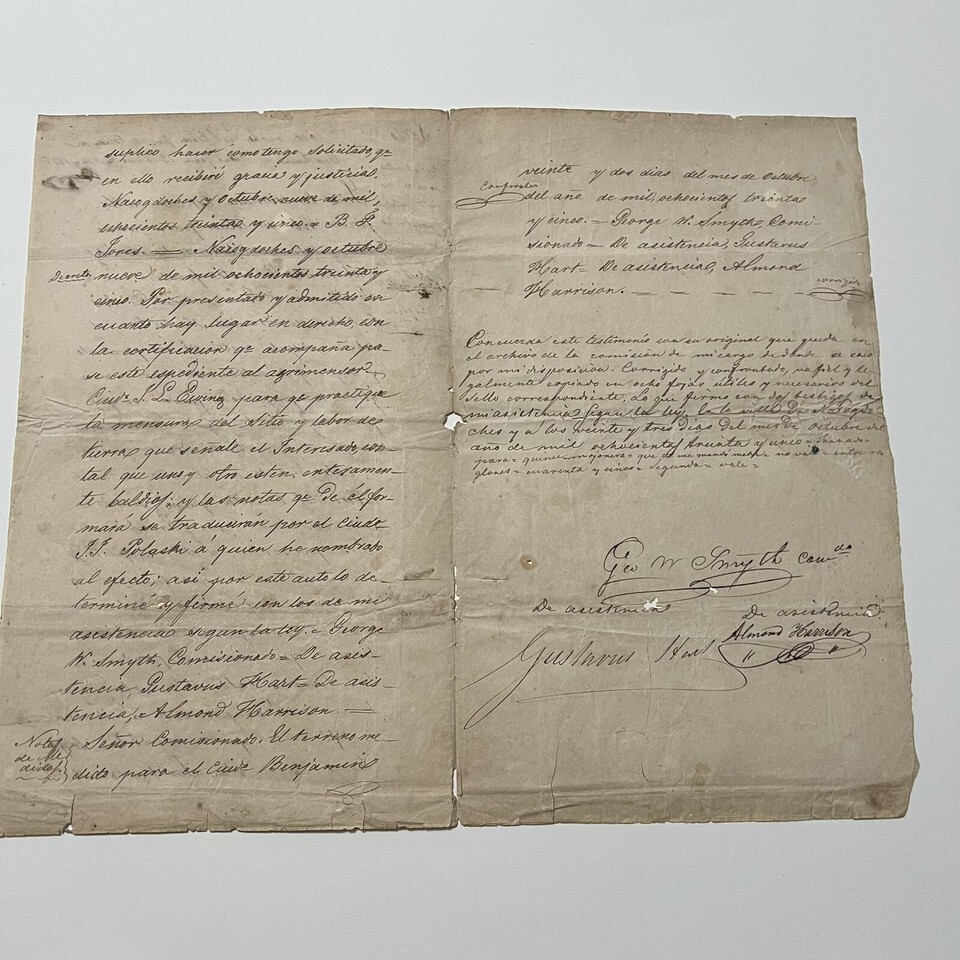 suplico hacer como tengo solicitado, qe
en ello recibiré gracia y justicia.
Nacogdoches y octubre nueve de mil,
ochocientos treinta y cinco. = B. F.
Jones. = Nacogdoches y octubre
Decreto nueve de mil ochocientos treinta y
cinco. Por presentado y admitido en
cuanto hay lugar en derecho, con
la certificacion qe acompaña pa-
se este espediente al agrimensor
Ciudo para qe practique
la mensura del sitio y labor de
tierra que señale el Interesado, con
tal que uno y otro esten enteramen-
te baldios; y las notas qe de él for-
mará se traducirán por el Ciudo
J. J. Polaski á quien he nombrado
al efecto; asi por este auto lo de-
terminé y firmé con los de mi
asistencia segun la ley. = George
W. Smyth, Comisionado = De asis-
tencia, Gustavus Hart = De asis-
tencia, Almond Harrison =
Notas de Medidas Señor Comisionado. El terreno me-
dido para el Ciudo Benjamin
veinte y dos dias del mes de Octubre
del año de mil, ochocientos treinta
y cinco. = George W. Smyth, Comi
sionado = De asistencia, Gustavus
Hart = De asistencia, Almond
Harrison. — — — —
Concuerda este testimonio con su original que queda en
el archivo de la comisión de mi cargo de donde se sacó
por mi disposicion. Corregido y confrontado, va fiel y le
galmente copiado en ocho fojas utiles y necesarias del
sello correspondiente, lo que firmo con dos testigos de
mi asistencia segun la ley. En la villa de Nacogdo-
ches y a los veinte y tres dias del mes de octubre del
año de mil ochocientos treinta y cinco =
no vale = entre re
glones = cuarenta y cinco = segunda = vale =
Geo W Smyth Comdo
De asistencia De asistencia
Almond Harrison
Gustavus Hart